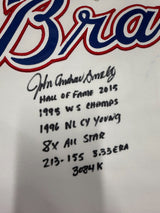 Bra
John Andrew Smoltz
HALL OF FAME 2015
1995 W S CHAMPS
1996 NL CY YOUNG
8X ALL STAR
213-155 3.33 ERA
3084 K